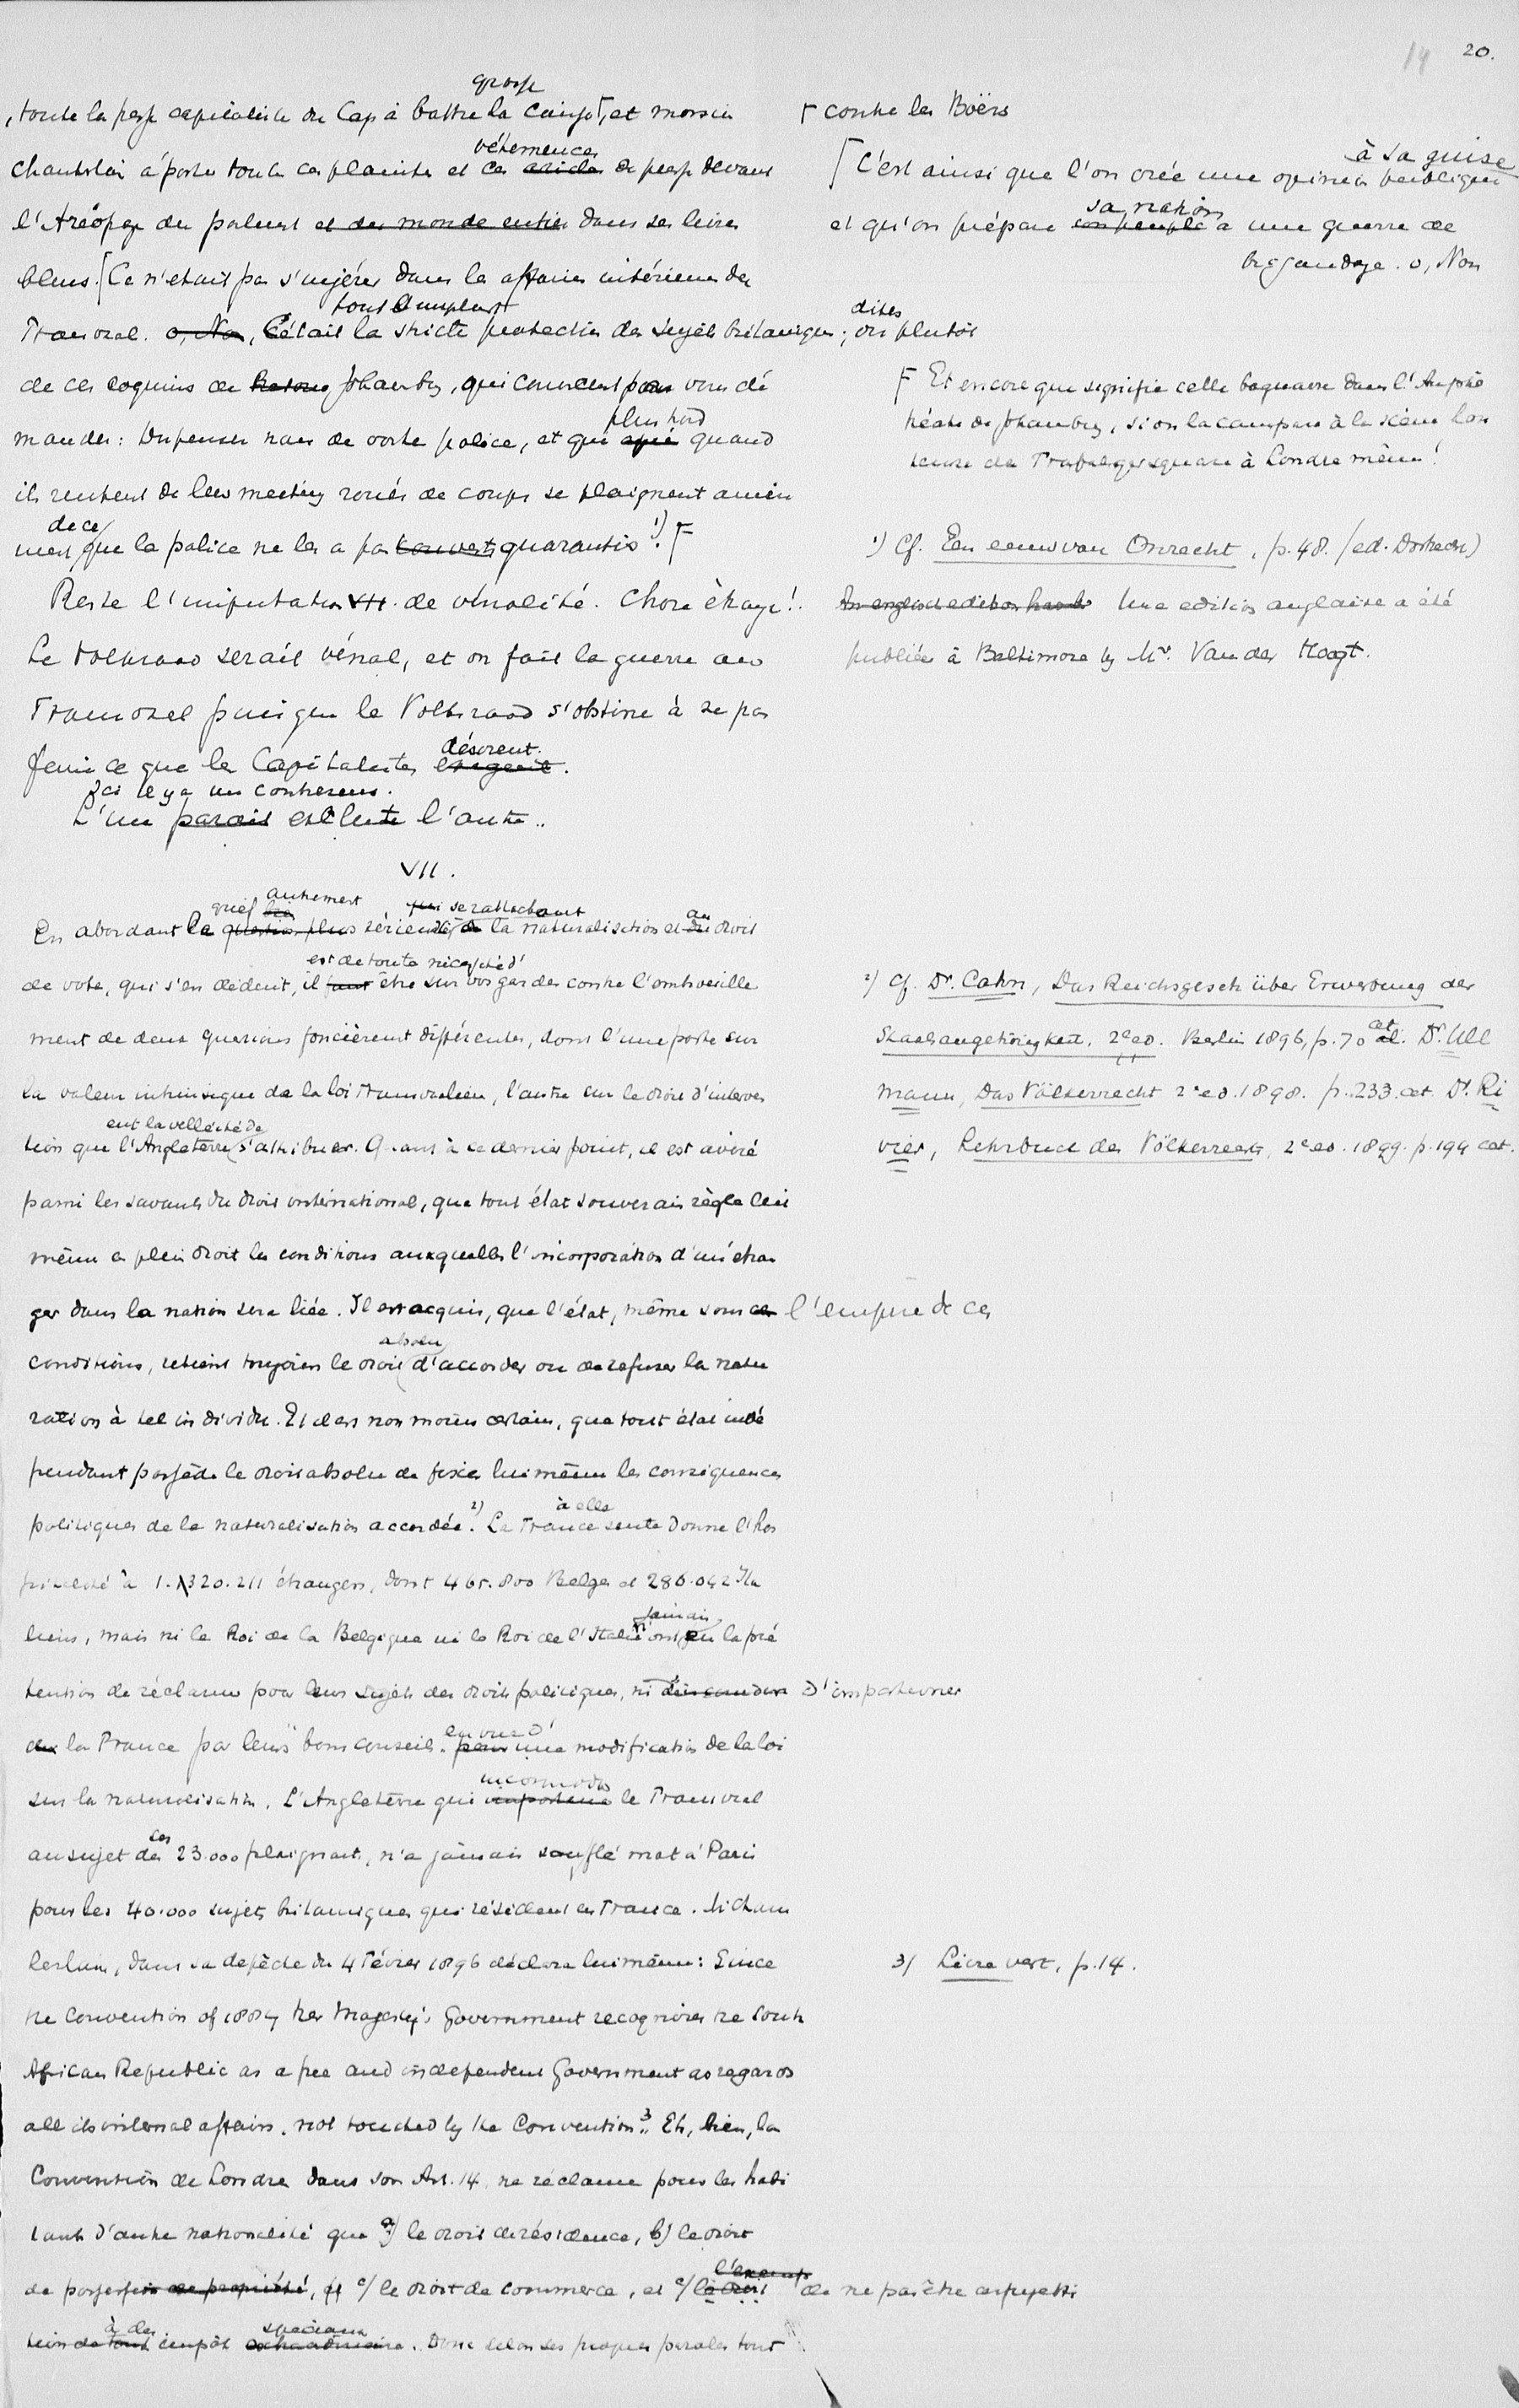 20.
19
grosse
, toute la presse capitaliste du Cap à battre la caisse, et monsieur
Γ contre les Boërs
véhémences
Chamberlain à porter toute ces plaintes et ces articles de presse devant
l'Aréopage du parlement et du monde entier dans ses livres
bleus. [Ce n'etait pas s'ingérer dans les affaires intérieures du
tout simplement
Transvaal. o, Non, C'était la stricte protection des sujets britanniques; ou plutôt
dites
de ces coquins de Johannesburg, qui commencent par vous dé
plus tard
mander: Dispensez nous de votre police, et qui après quand
ils rentrent de leur meeting roués de coups se plaignent amère
de ce
ment que la police ne les a pas couverts quarantis ¹). F
Reste l'imputation VII. de vénalité. Chose étrange!
Le Volksraad serait vénal, et on fait la guerre au
Transvaal puisque le Volksraad s'obstine à ne pas
désirent.
faire ce que les Capitalistes exigent.
Ici il y a un contresens.
L'un parait exclut l'autre..
[C'est ainsi que l'on crée une opinion publique
à sa guise
sa nation
et qu'on prépare son peuple à une guerre de
brigandage. o, Non
F Et encore que signifie cette bagarre dans l'Amphi
théatre de Johannesburg, si on la compare à la scène hon
teuse de Trafalgarsquare à Londres même!
¹) Cf. Een eeuw van Onrecht, p. 48. (ed. Dordrecht)
An english edition has be Une edition anglaise a été
publiée à Baltimore by Mr. Van der Hoogt.
VII.
grief autrement se rattachant
En abordant la question plus sérieuse, de la naturalisation et du droit
au
est de toute nécessité d'
de vote, qui s'en déduit, il faut être sur vos gardes contre l'embrouille
ment de deux questions foncièrement différentes, dont l'une porte sur
la valeur intrinsèque de la loi transvalienne, l'autre sur le droit d'interven
eut la velléité de
tion que l'Angleterre s'attribuer. Quant à ce dernier point, il est avéré
parmi les savants du droit international, que tout état souverain règle lui
même en plein droit les conditions auxquelles l'incorporation d'un étran
ger dans la nation sera liée. Il est acquis, que l'état, même sous ces l'empire de ces
absolu
conditions, retient toujours le droit d'accorder ou de refuser la natu
ration à tel individu. Et il est non moins certain, que tout état indé
pendant possède le droit absolu de fixer lui même les conséquences
à elle
politiques de la naturalisation accordée. ²) La France seule donne l'hos
pitalité à 1.320.211 étrangers, dont 465.800 Belges et 286.042 Ita
jamais
liens, mais ni le Roi de la Belgique ni le Roi de l'Italie n'ont eu la pré
tention de réclamer pour leurs sujets des droits politiques, ni d'importuner
en vue d'
la France par leurs bons conseils pour une modification de la loi
incommode
sur la naturalisation. L'Angleterre qui importune le Transvaal
ces
au sujet des 23.000 plaignants, n'a jamais soufflé mot à Paris
pour les 40.000 sujets britanniques qui résident en France. M. Cham
berlain, dans sa depêche du 4 Février 1896 déclara lui même: Since
the Convention of 1884 her Magesty's Government recognises the South
African Republic as a free and independent Government as regards
all its internal affairs, not touched by the Convention. ³ Eh, bien, la
Convention de Londres dans son Art. 14. ne réclame pour les habi
tants d'autre nationalité que a) le droit de résidence, b) le droit
de possession de propriété, c) le droit de commerce, et le droit de ne pas être assujetti
à des spéciaux
tion de tout impôt extraordinaire. Donc selon ses propres paroles tout
²) Cf. Dr. Cahn, Das Reichsgesetz über Erwerbung der
Staatsangehörigkeit, 2e ed. Berlin 1896, p. 70 cet. Dr. Ull
mann, Das Völkerrecht 2e ed. 1898. p. 233. cet. Dr. Ri
vier, Lehrbuch des Völkerrechts, 2e ed. 1899. p. 194 cet.
3) Livre vert, p. 14.